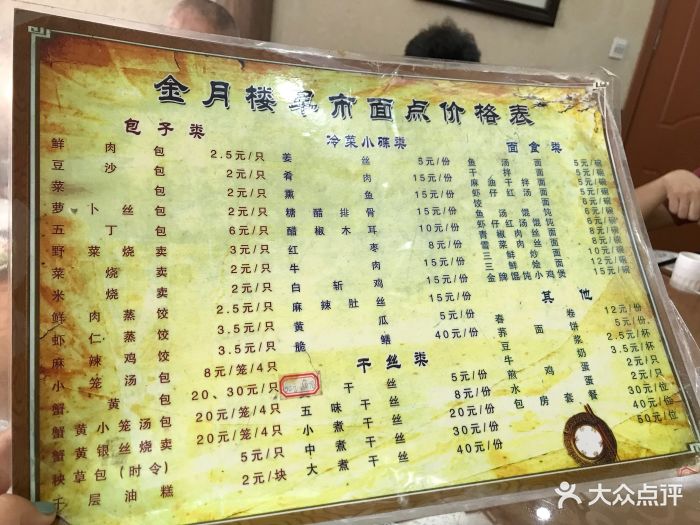 金月楼早市面点价格表
包子类
鲜肉包 2.5元/只
豆沙包 2元/只
菜包 2元/只
萝卜丝包 2元/只
五丁包 6元/只
野菜烧卖 3元/只
菜烧卖 2元/只
米烧卖 2元/只
鲜肉蒸饺 2.5元/只
虾仁蒸饺 3.5元/只
麻辣鸡饺 3.5元/只
小笼汤包 8元/笼/4只
蟹黄包 20、30元/只
蟹黄小笼汤包 20元/笼/4只
蟹黄银丝烧卖 20元/笼/4只
秧草包(时令) 5元/只
千层油糕 2元/块
冷菜小碟类
姜丝 5元/份
肴肉 15元/份
熏鱼 15元/份
糖醋排骨 15元/份
醋椒木耳 10元/份
红枣 8元/份
牛肉 15元/份
白斩鸡 15元/份
麻辣肚丝 15元/份
黄瓜 5元/份
脆鳝 40元/份
干丝类
干丝 5元/份
五味干丝 8元/份
小煮干丝 20元/份
中煮干丝 30元/份
大煮干丝 40元/份
面食类
鱼汤面 5元/碗
干拌面 5元/碗
饺面
鱼汤馄饨
青椒肉丝面
雪菜肉丝面
三鲜面
其他
春卷 12元/份
荞面饼 5元/份
豆浆 2.5元/杯
牛奶 3.5元/杯
煎鸡蛋 2元/只
水蛋 2元/只
包房套餐 30元/位
40元/位
50元/位
大众点评